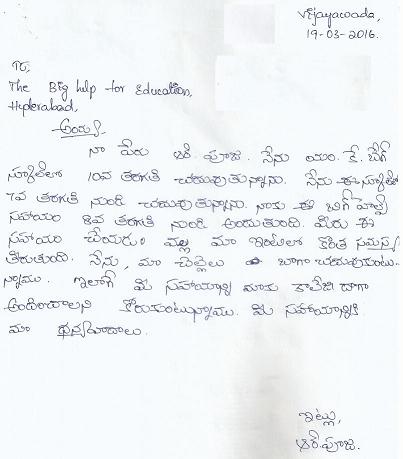 Vijayawada,
19-03-2016.
To,
The Big help for Education,
Hyderabad,
అయ్యా,
నా పేరు ఆర్. పూజ. నేను యం. కే. బేగ్
స్కూల్లో 10వ తరగతి చదువుతున్నాను. నేను ఈ స్కూల్లో
7వ తరగతి నుండి చదువుతున్నాను. నాకు ఈ బిగ్ హెల్ప్
సహాయం 8వ తరగతి నుండి అందుతుంది. మీరు ఈ
సహాయం చేయడం వల్ల మా ఇంటిలో కొంత సమస్య
తీరుతుంది. నేను, మా చెల్లెలు బాగా చదువుకుంటు-
న్నాము. ఇలాగే మీ సహాయాన్ని మాకు కాలేజి దాగా
అందించాలని కోరుకుంటున్నాము. మీ సహాయానికి
మా ధన్యవాదాలు.
ఇట్లు,
ఆర్. పూజ.